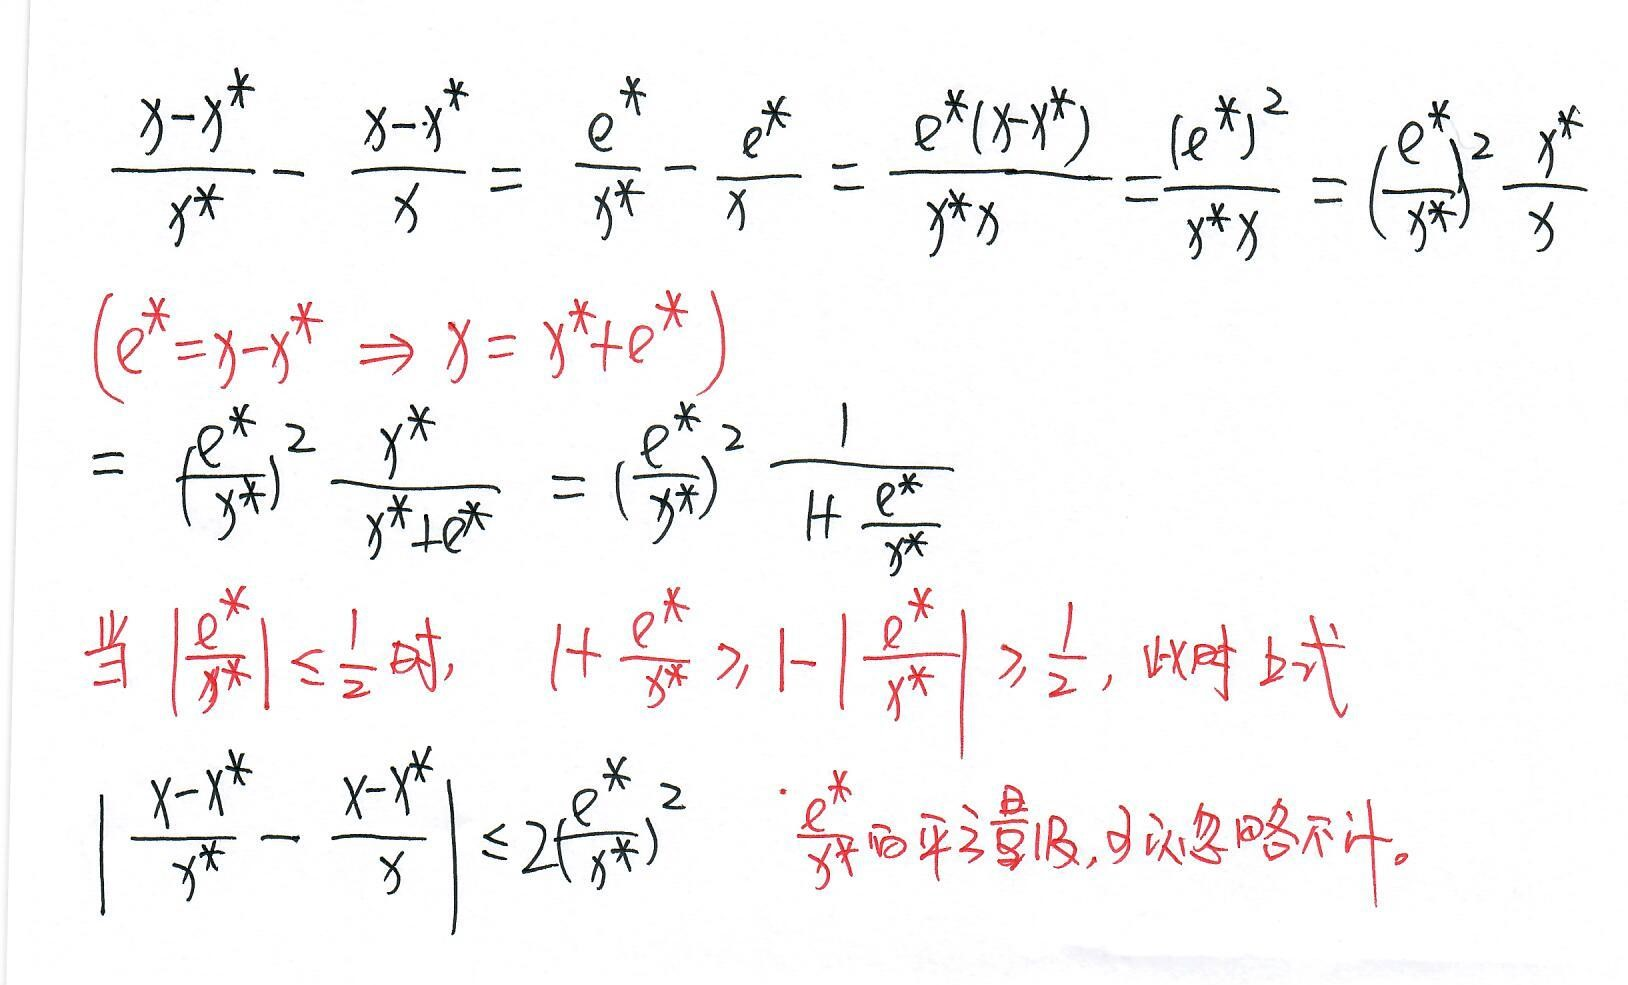 (x-x*)/x* - (x-x*)/x = e*/x* - e*/x = e*(x-x*)/(x*x) = (e*)²/(x*x) = (e*/x*)² x*/x
(e*=x-x* ⇒ x = x*+e*)
= (e*/x*)² x*/(x*+e*) = (e*/x*)² 1/(1+e*/x*)
当 |e*/x*| ≤ 1/2 时, 1+e*/x* ≥ 1-|e*/x*| ≥ 1/2, 此时上式
|(x-x*)/x* - (x-x*)/x| ≤ 2(e*/x*)² e*/x* 的平方量级,可以忽略不计。